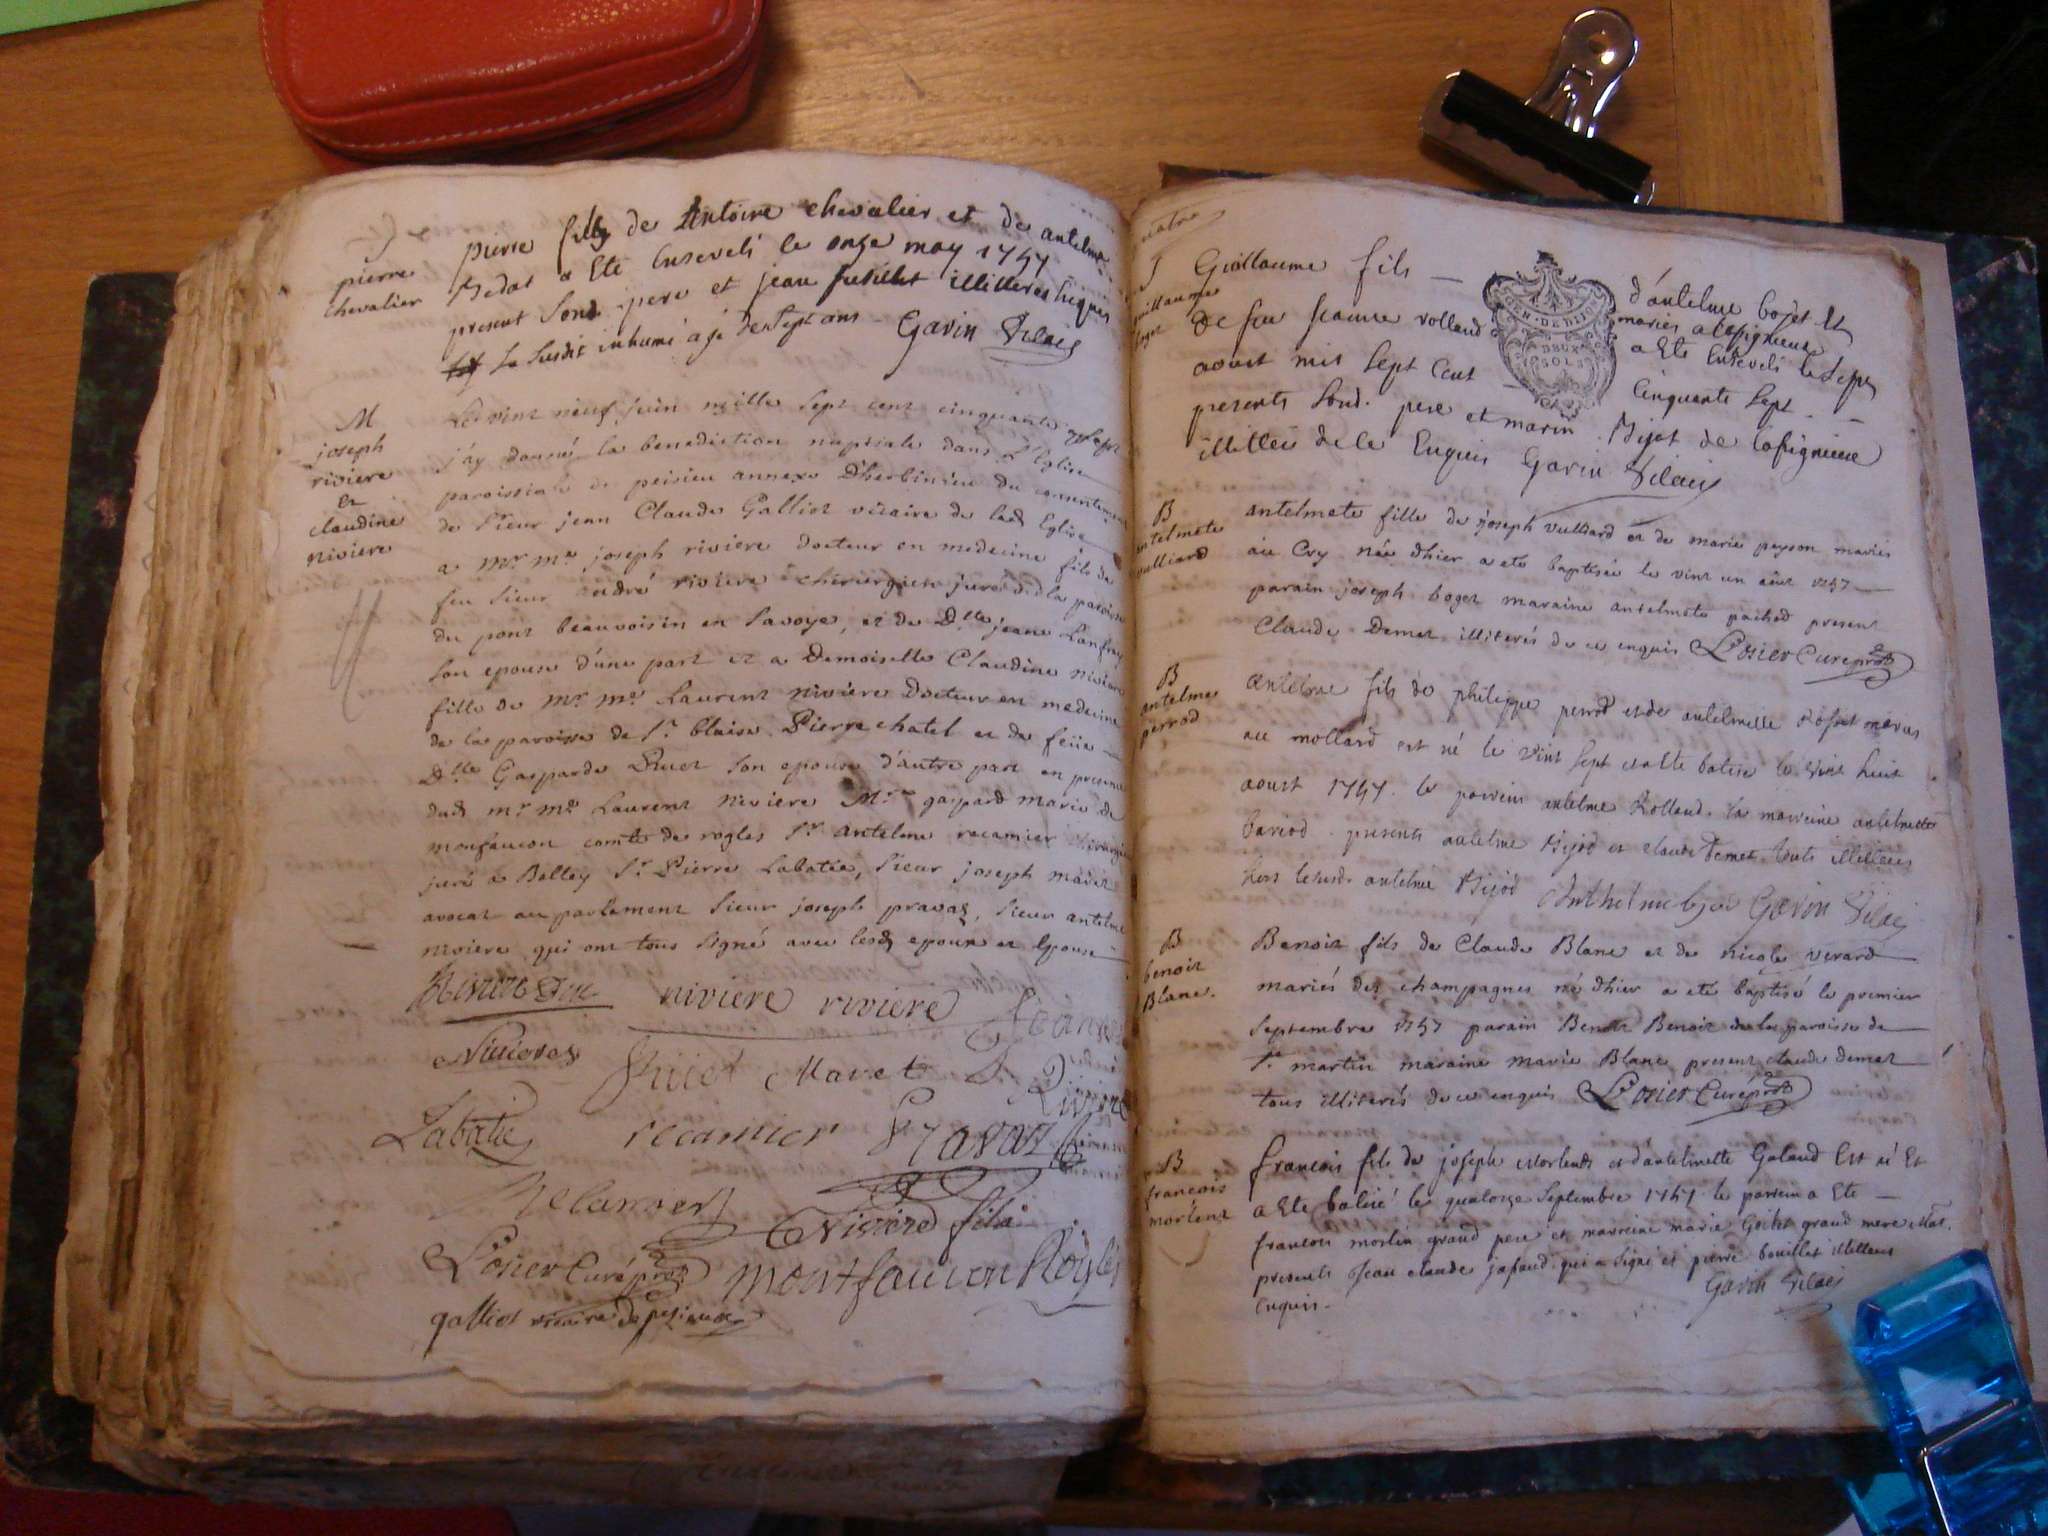 J
pierre
chevalier
pierre fils de Antoine chevalier et de antelme
Bidat a Ete Enseveli le onze may 1757
present Sond. pere et jean fusillet illitteres Enquis
Le Susdit inhumé agé de sept ans - Gavin Vicaire
M
joseph
riviere
et
claudine
niviere
Le vint neuf juin mille sept cent cinquante sept
j'ay donné la benediction nuptiale dans L'Eglise
paroissiale de peisieu annexe D'herbinieu du consentement
de Sieur jean Claude Galliot vicaire de lad Eglise
a mr. me. joseph riviere docteur en medecine fils de
feu Sieur andré riviere chirurgien juré de la paroisse
du pont beauvoisin en Savoye, et de Dlle jeane Lanfrey
son epouse d'une part et a Demoiselle Claudine niviere
fille de mr. me. Laurent niviere Docteur en medecine
de la paroisse de St. blaise Pierre chatel et de feüe
Dlle Gasparde Druet son epouse d'autre part en presence
dud mr. me. Laurent niviere Mre gaspard marie de
monfaucon comte de rogles Sr. antelme recamier chirurgien
juré a Belley Sr. Pierre Labatie, Sieur joseph maret
avocat au parlement Sieur joseph pravaz, Sieur antelme
niviere qui ont tous signé avec lesd epoux et epouse
niviere riviere
Maret
Labatie recamier Pravaz
Niviere fils
Losier Curé montfaucon Rogles
galliot vicaire de pesieux
J
guillaume
Guillaume fils d'antelme bojet Et
de feu jeanne rolland mariés a lapignieux
a Ete Enseveli le sept
aoust mil Sept Cent Cinquante Sept
GEN. DE DIJON
DEUX
SOLS
presents Sond. pere et marin Bijot de lapignieux
illitteré de ce Enquis Gavin Vicaire
B
antelmete
vulliard
antelmete fille de joseph vulliard et de marie peyson mariés
au Cry née d'hier a ete baptisée le vint un aout 1757
parain joseph boget maraine antelmete pached present
Claude Demet illiterés de ce enquis Losier Curé
B
antelme
perrod
antelme fils de philippe perrod et de antelmette mariés
au mollard est né le vint sept et a Ete batisé le vint huit
aoust 1757. le parrein antelme Rolland. la marreine antelmette
bariod. presents antelme Bijod et claude Demet touts illitterés
hors lesusd. antelme Bijod Anthelme bijod Gavin Vicaire
B
benoit
Blanc.
Benoit fils de Claude Blanc et de nicole verard
mariés des champagnes né d'hier a eté baptisé le premier
Septembre 1757 parain Benoit Benoit de la paroisse de
St. martin maraine marie Blanc present claude demet
tous illiterés de ce enquis Losier Curé
B
francois
morlent
francois fils de joseph morlent et d'antelmette Galaud Est né Et
a Ete batisé le quatorze Septembre 1757 le parrein a Ete
francois morlin grand pere et marreine marie grand mere
presents Jean claude jafaud qui a signé et pierre bouillet illitteré
Enquis. Gavin Vicaire